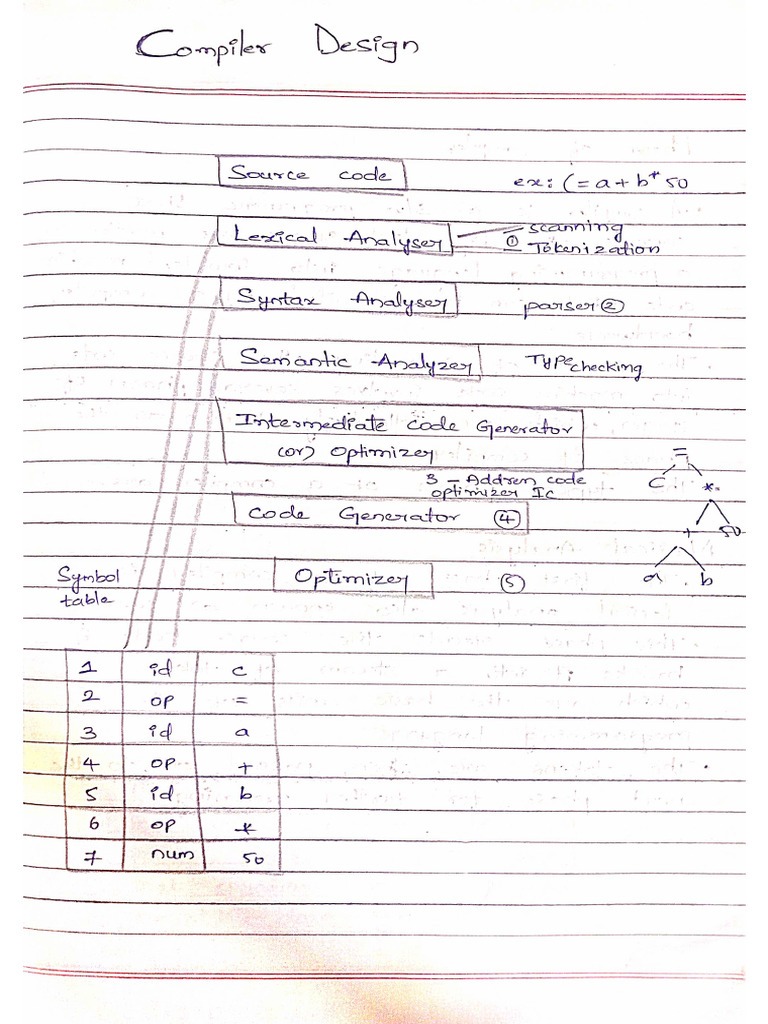 Compiler Design
Source code ex: C = a + b * 50
Lexical Analyser - scanning
① - Tokenization
Syntax Analyser parser ②
Semantic Analyzer Type checking
Intermediate code Generator
(or) Optimizer
3 - Addren code
optimizer Ic
=
C *
Code Generator ④
+ 50
Symbol Optimizer ⑤ a b
table
1 id c
2 op =
3 id a
4 op +
5 id b
6 op *
7 num 50